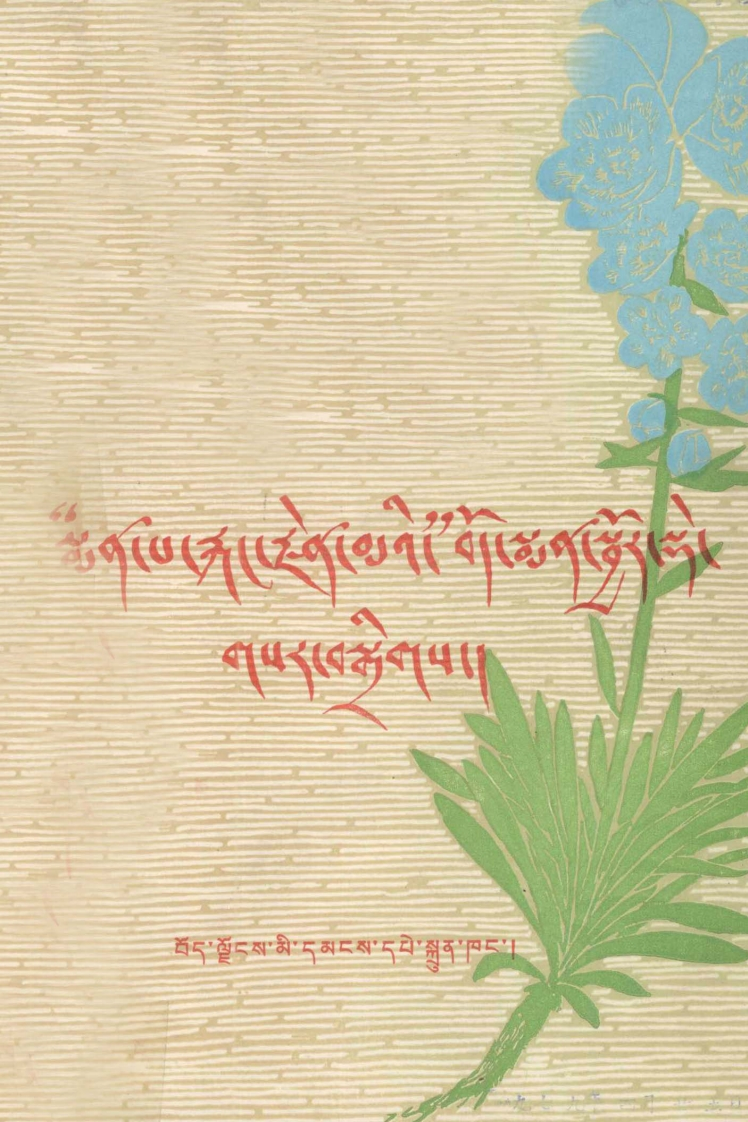 “སྨན་པ་རྐང་རྗེན་མའི” སྨན་སྦྱོར་སྡེ་
གསར་བསྒྲིགས་པ།།
བོད་ལྗོངས་མི་དམངས་དཔེ་སྐྲུན་ཁང་།